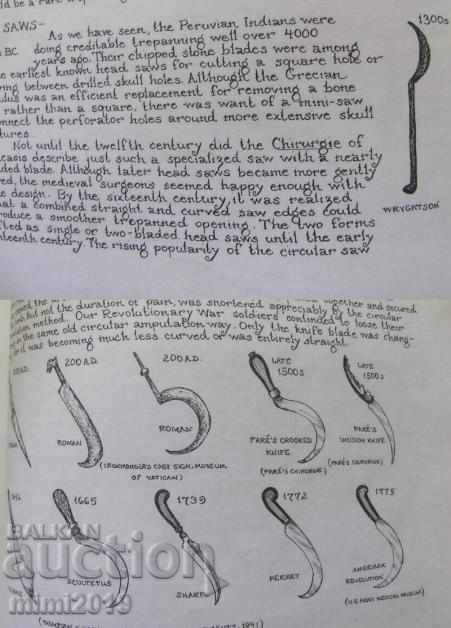 SAWS-
As we have seen, the Peruvian Indians were
BC doing creditable trepanning well over 4000
years ago. Their chipped stone blades were among
earliest known head saws for cutting a square hole or
between drilled skull holes. Although the Grecian
was an efficient replacement for removing a bone
rather than a square, there was want of a mini-saw
connect the perforator holes around more extensive skull
Not until the twelfth century did the Chirurgie of
describe just such a specialized saw with a nearly
blade. Although later head saws became more gently
the medieval surgeons seemed happy enough with
design. By the sixteenth century, it was realized
a combined straight and curved saw edges could
a smoother trepanned opening. The two forms
as single or two-bladed head saws until the early
century. The rising popularity of the circular saw
1300s
WRYGHTSON
together and secured
but not the duration of pain, was shortened appreciably by the circular
method. Our Revolutionary War soldiers continued to loose their
in the same old circular amputation way. Only the knife blade was chang-
it was becoming much less curved or was entirely straight.
200 A.D.
ROMAN
200 A.D.
ROMAN
(IRONMONGER'S CODE SIGN, MUSEUM
OF VATICAN)
LATE
1500s
PARÉ'S CROOKED
KNIFE
(PARÉ'S CHIRURGIE)
LATE
1500s
PARÉ'S
INCISION KNIFE
(PARÉ'S CHIRURGIE)
1665
SCULTETUS
1739
SHARP
1772
PERRET
1775
AMERICAN
REVOLUTION
BALKAN
auction
mimi2019